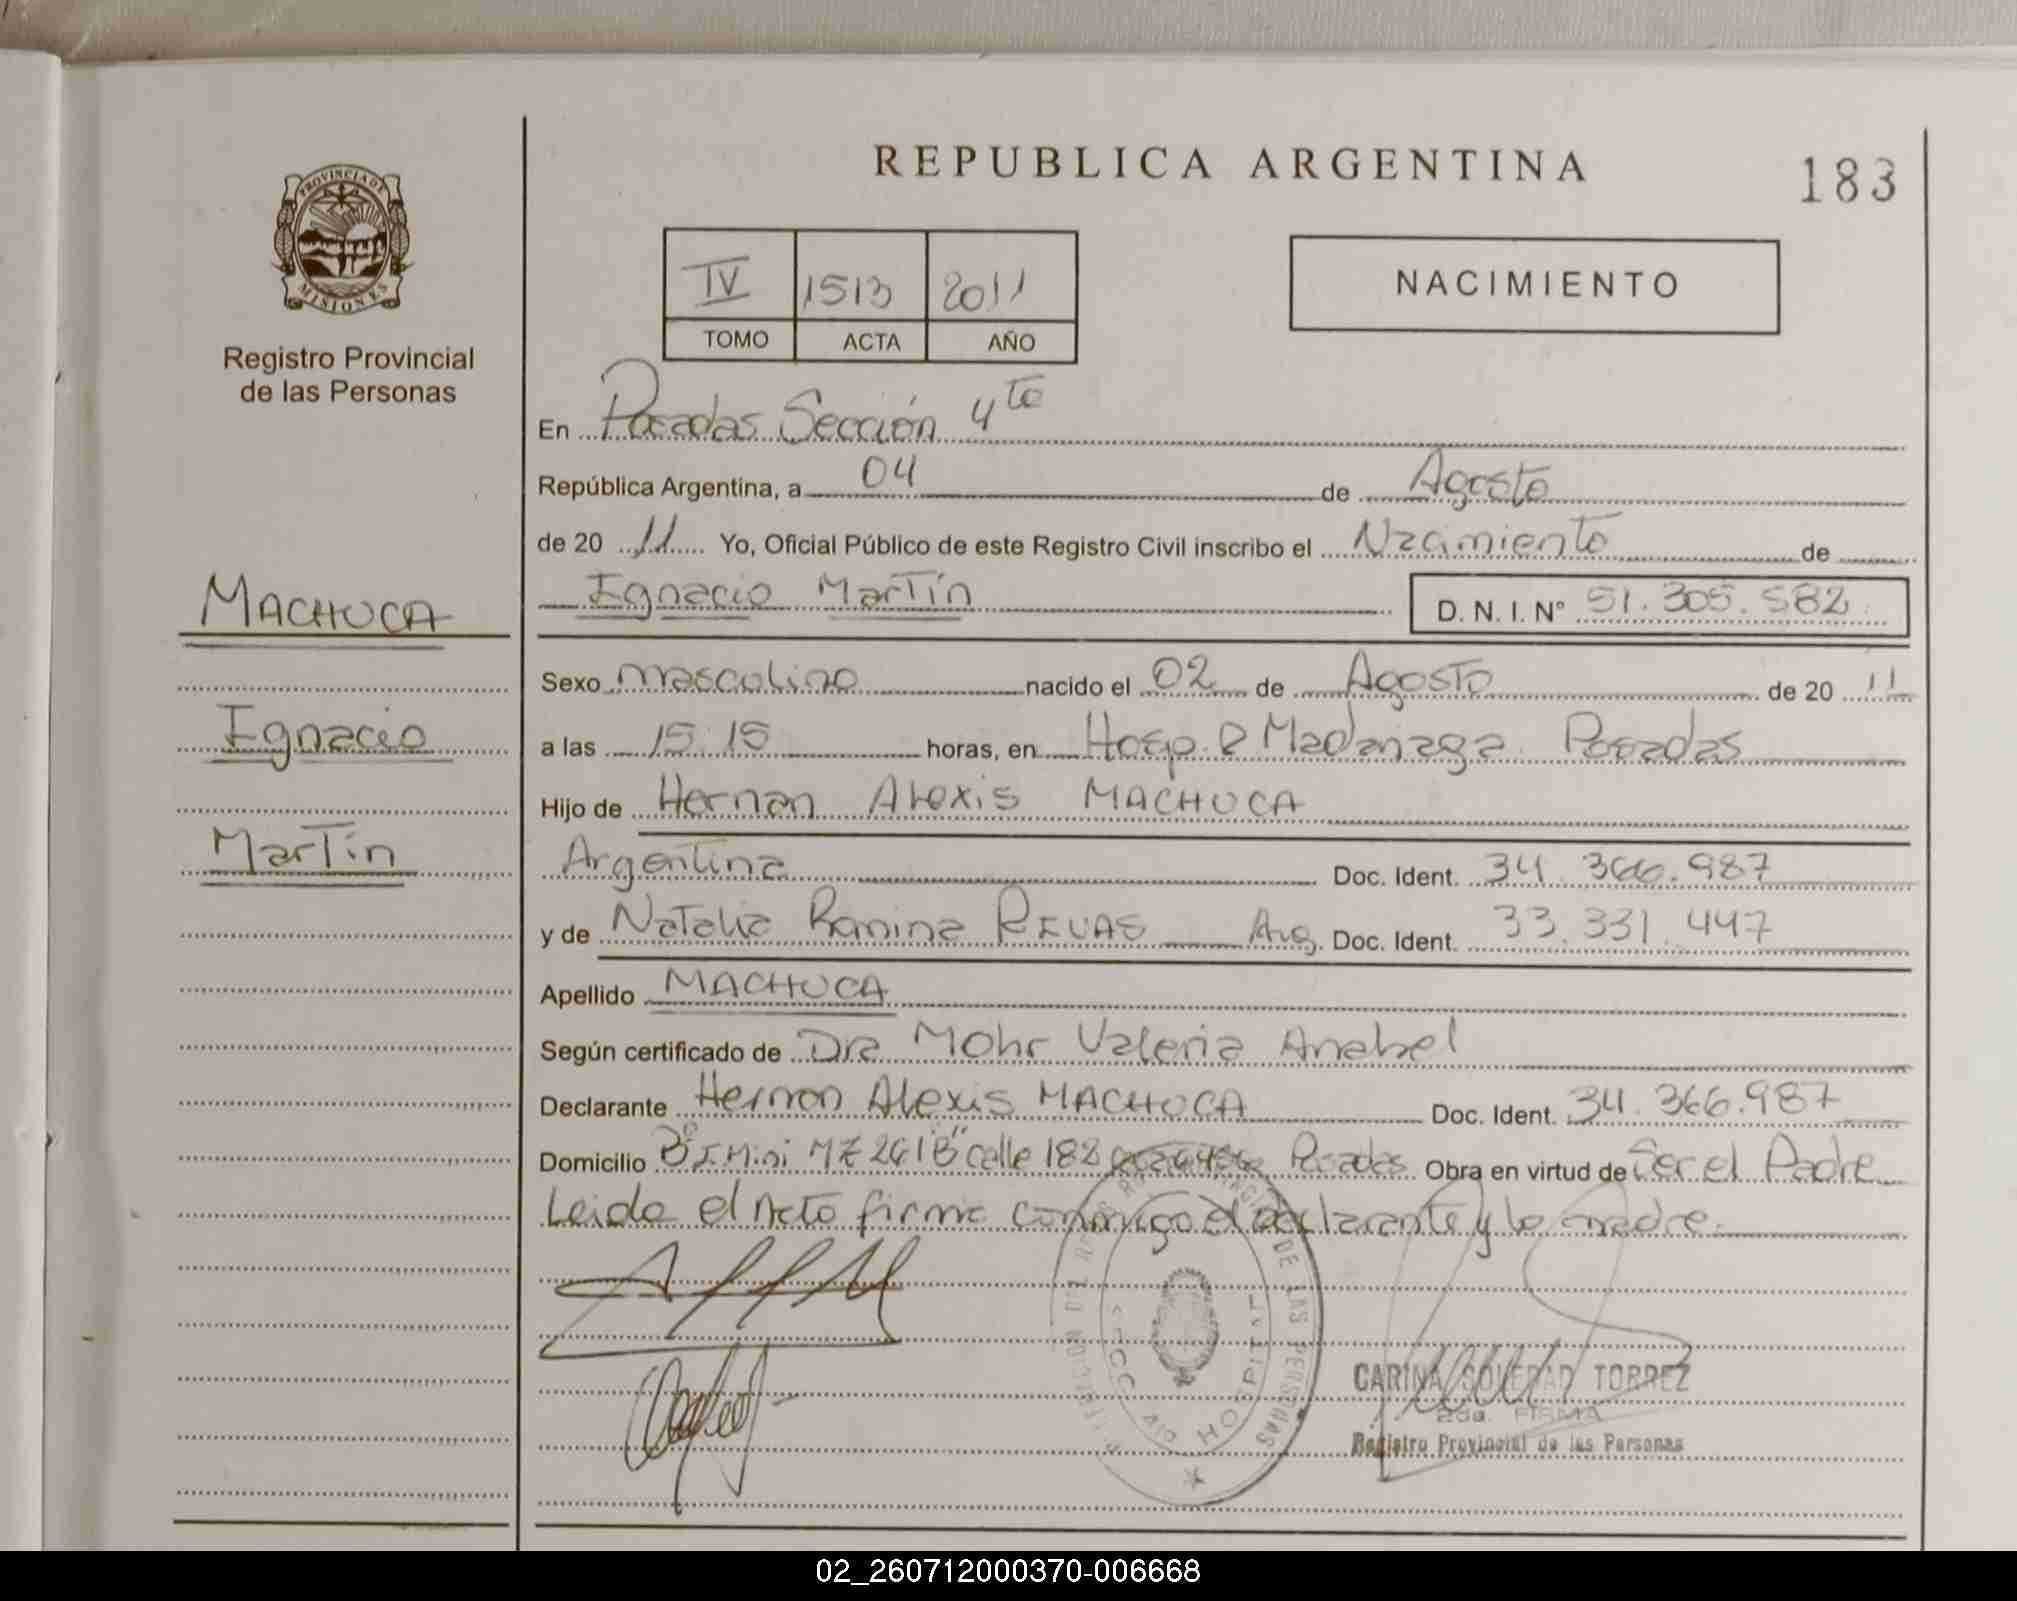 REPUBLICA ARGENTINA
183
PROVINCIA DE
MISIONES
Registro Provincial
de las Personas
IV 1513 2011
TOMO ACTA AÑO
NACIMIENTO
En Posadas Sección 4ta
República Argentina, a 04 de Agosto
de 20 11 Yo, Oficial Público de este Registro Civil inscribo el Nacimiento de
Ignacio Martín D. N. I. N° 51.305.582
MACHUCA
Ignacio
Martín
Sexo masculino nacido el 02 de Agosto de 20 11
a las 15:15 horas, en Hosp. R Madariaga. Posadas
Hijo de Hernan Alexis MACHUCA
Argentina Doc. Ident. 34.366.987
y de Natalia Romina RIVAS Arg. Doc. Ident. 33.331.447
Apellido MACHUCA
Según certificado de Dra Mohr Valeria Anabel
Declarante Hernan Alexis MACHUCA Doc. Ident. 34.366.987
Domicilio B° I Mini MZ 241 "B" calle 182 Posadas Obra en virtud de Ser el Padre
Leida el Acta firma conmigo el declarante y la madre.
DE LAS PERSONAS
CARINA SOLEDAD TORREZ
2da. FIRMA
Registro Provincial de las Personas
02_260712000370-006668